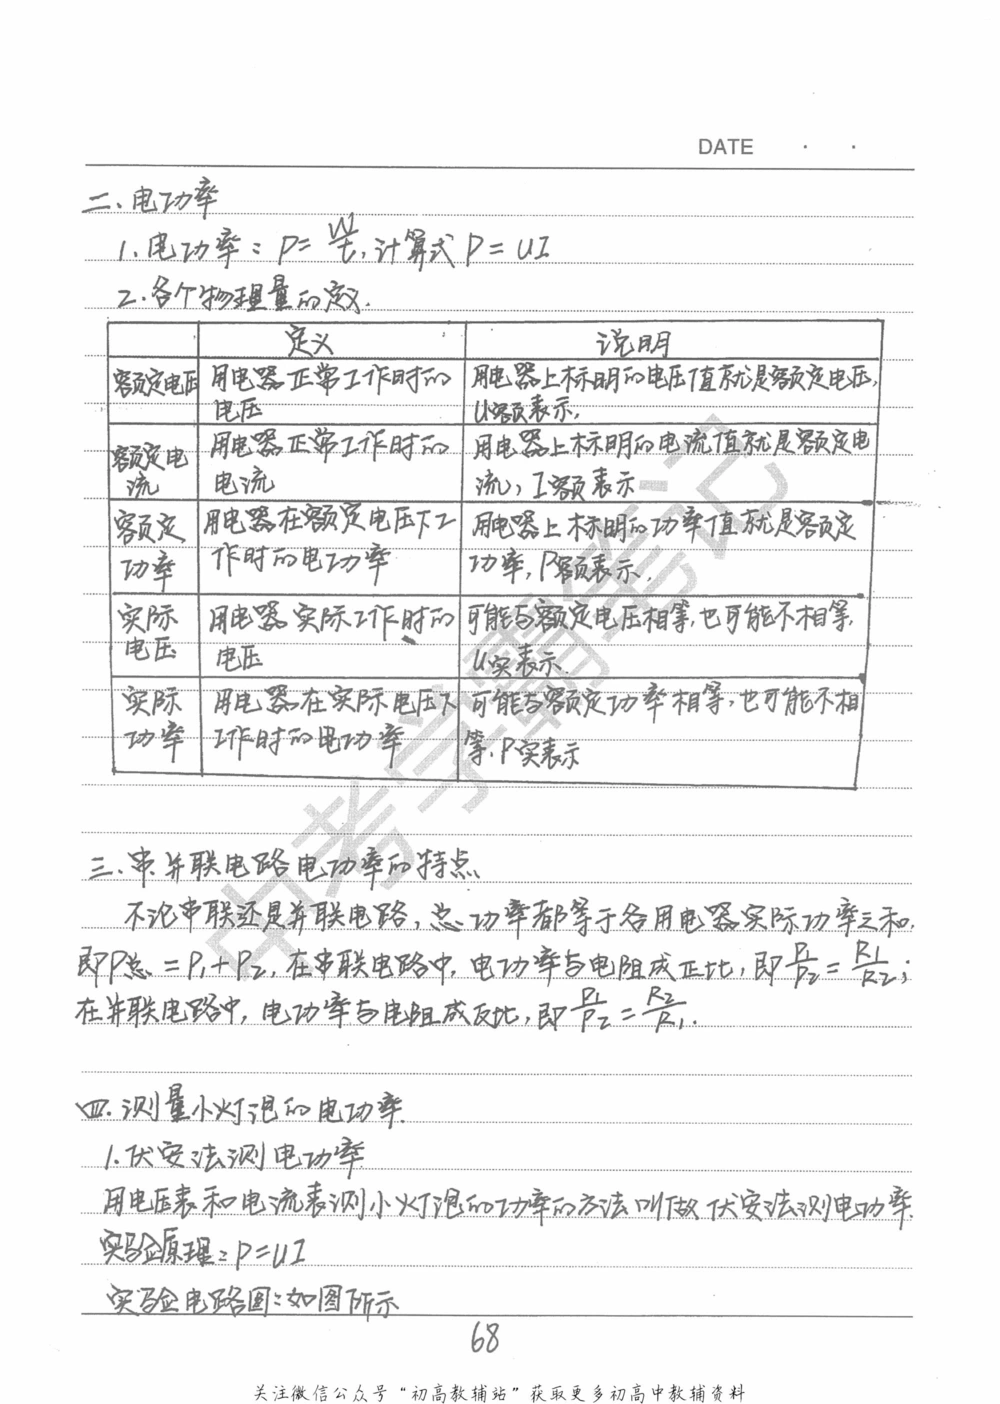 DATE · ·
二、电功率
1、电功率：P=W/t，计算式P=UI
2.各个物理量的定义.
定义 说明
额定电压 用电器正常工作时的电压 用电器上标明的电压值就是额定电压，U额表示，
额定电流 用电器正常工作时的电流 用电器上标明的电流值就是额定电流，I额表示
额定功率 用电器在额定电压下工作时的电功率 用电器上标明的功率值就是额定功率，P额表示，
实际电压 用电器实际工作时的电压 可能与额定电压相等，也可能不相等，U实表示.
实际功率 用电器在实际电压下工作时的电功率 可能与额定功率相等，也可能不相等，P实表示
三、串并联电路电功率的特点
不论串联还是并联电路，总功率都等于各用电器实际功率之和，
即P总=P1+P2，在串联电路中，电功率与电阻成正比，即P1/P2=R1/R2；
在并联电路中，电功率与电阻成反比，即P1/P2=R2/R1.
四、测量小灯泡的电功率
1.伏安法测电功率
用电压表和电流表测小灯泡的功率的方法叫做伏安法测电功率.
实验原理：P=UI
实验电路图：如图所示
68
关注微信公众号“初高教辅站”获取更多初高中教辅资料
中考学霸笔记